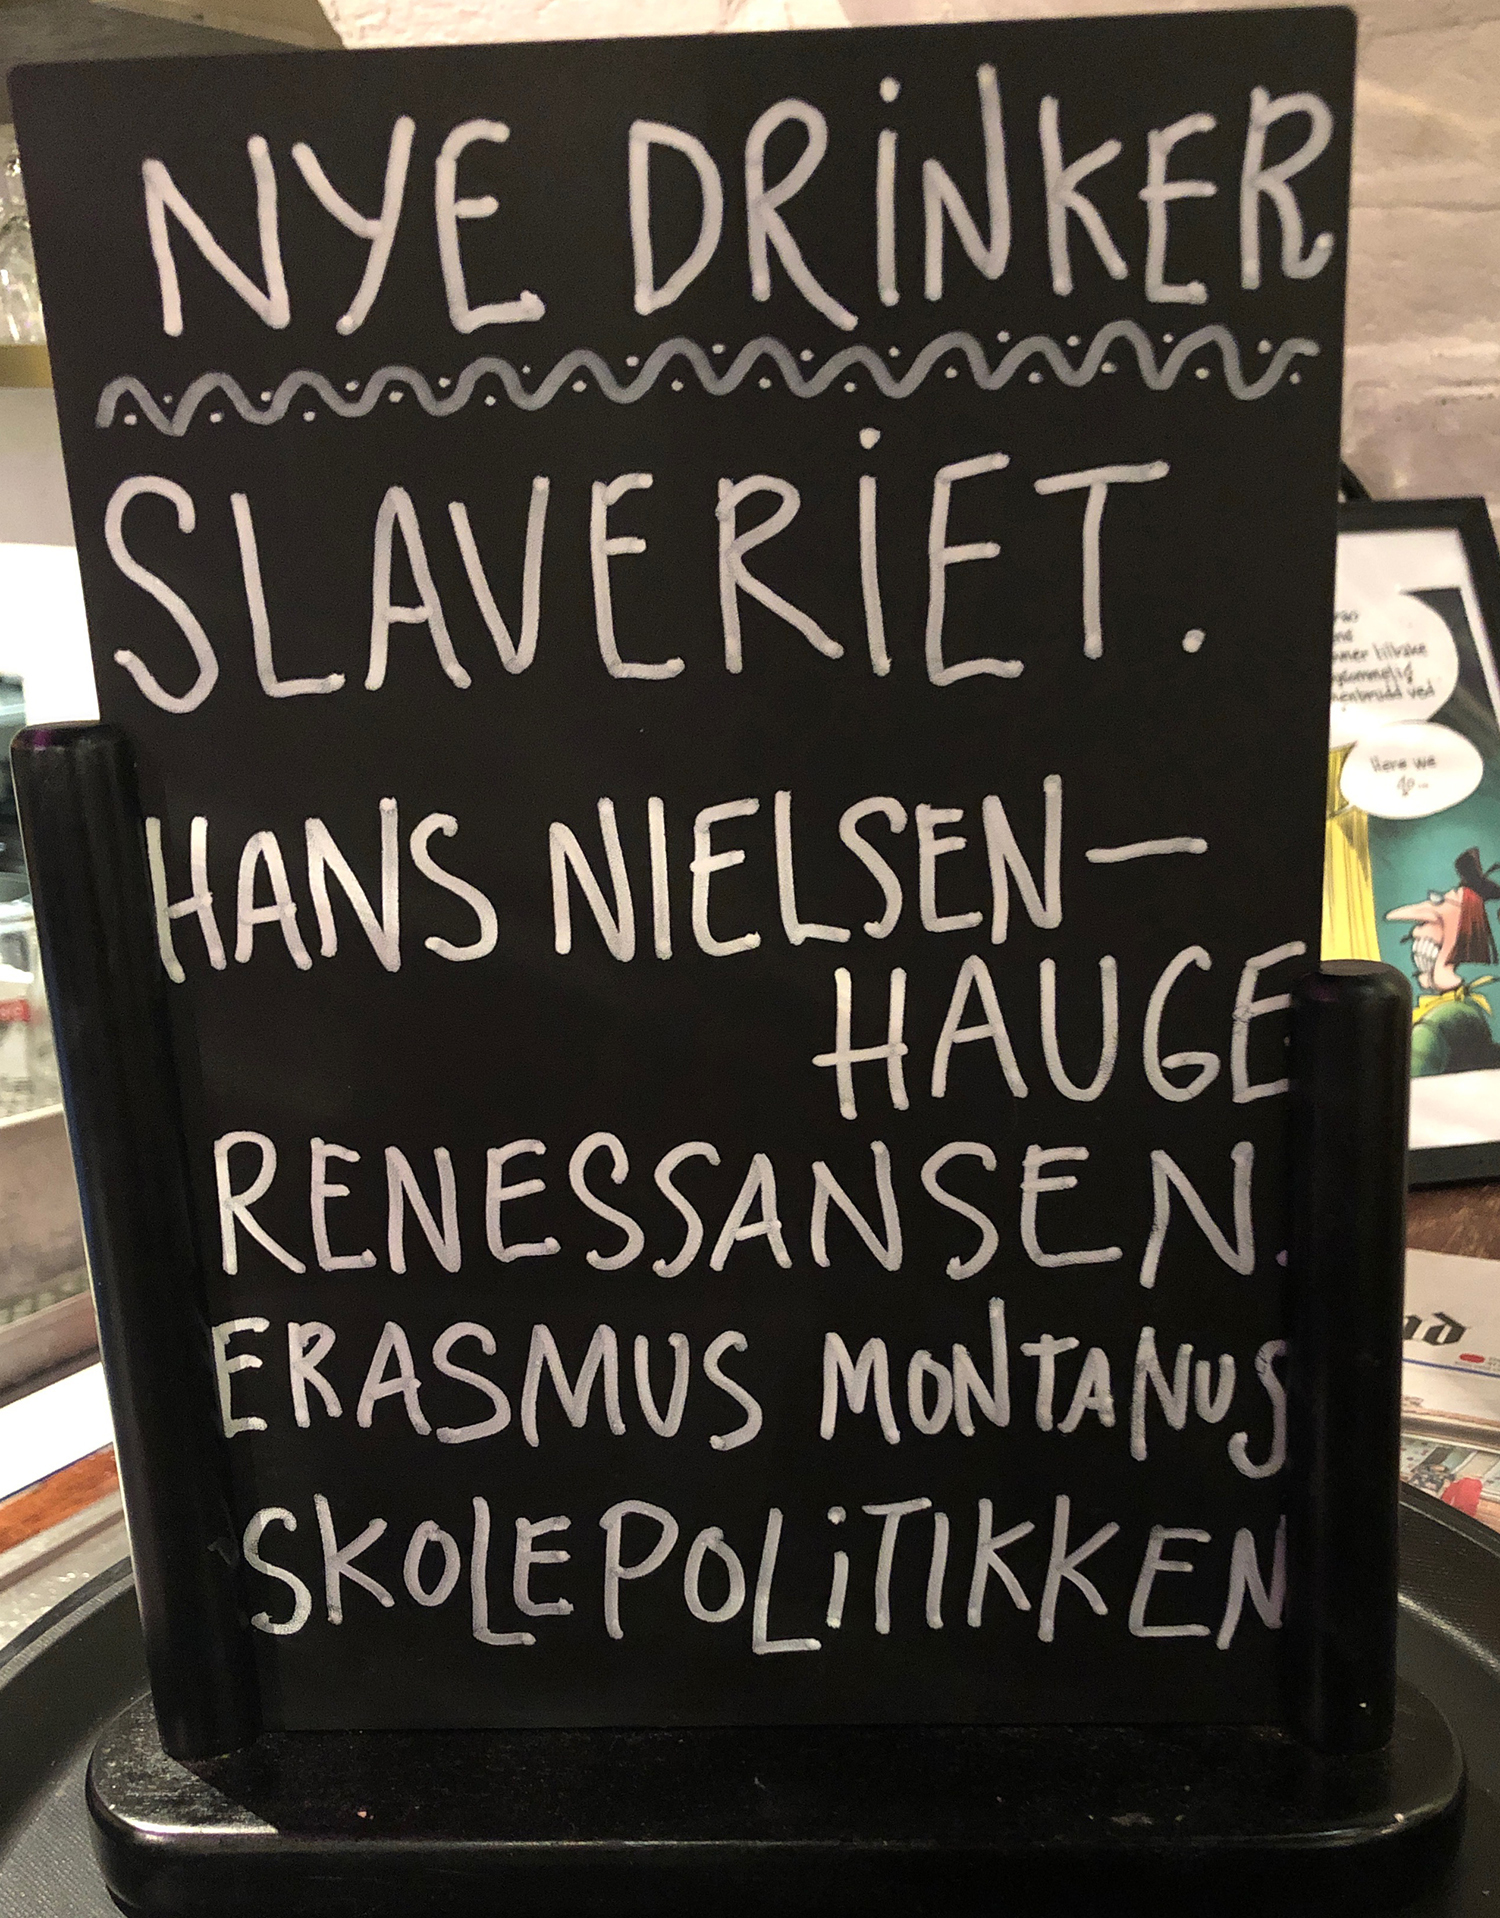 NYE DRINKER
SLAVERIET.
HANS NIELSEN-
HAUGE
RENESSANSEN.
ERASMUS MONTANUS
SKOLEPOLITIKKEN
tilbake
ved
Here we
go...